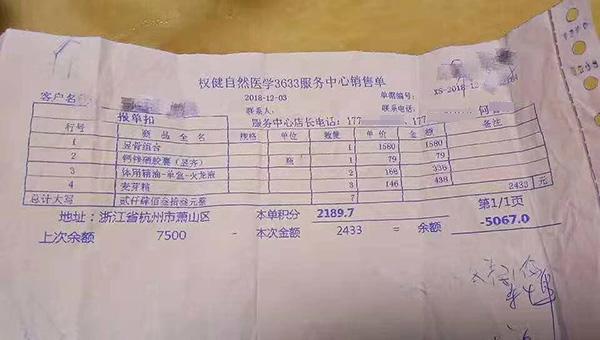 权健自然医学3633服务中心销售单
客户名 2018-12-03 单据编号: XS-2018-12
联系人: 联系电话:
报单扣 服务中心店长电话: 177 、177
行号 商品全名 规格 单位 数量 单价 金额 备注
1 昱骨组合 1 1580 1580
2 钙锌硒胶囊(昱齐) 瓶 1 79 79
3 体用精油-单盒-火龙液 2 168 336
4 麦芽精 3 146 438
总计大写 贰仟肆佰叁拾叁元整 7 2433 元
地址: 浙江省杭州市萧山区 本单积分 2189.7 第1/1页
上次余额 7500 - 本次金额 2433 = 余额 -5067.0